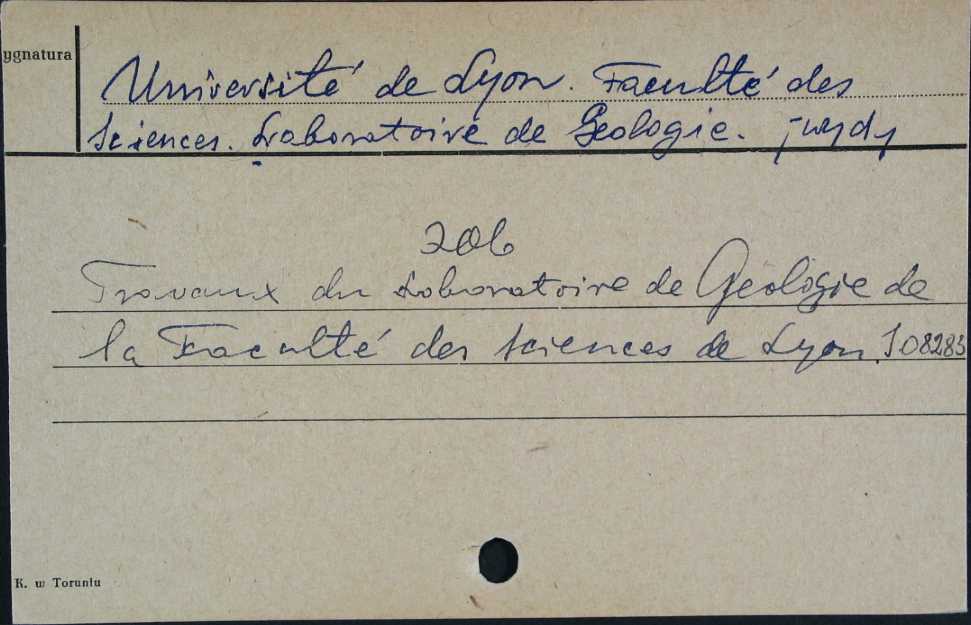 ygnatura
Université de Lyon. Faculté des
Sciences. Laboratoire de Geologie.
zob
Travaux du Laboratoire de Géologie de
la Faculté des Sciences de Lyon. S 08283
K. w Toruniu